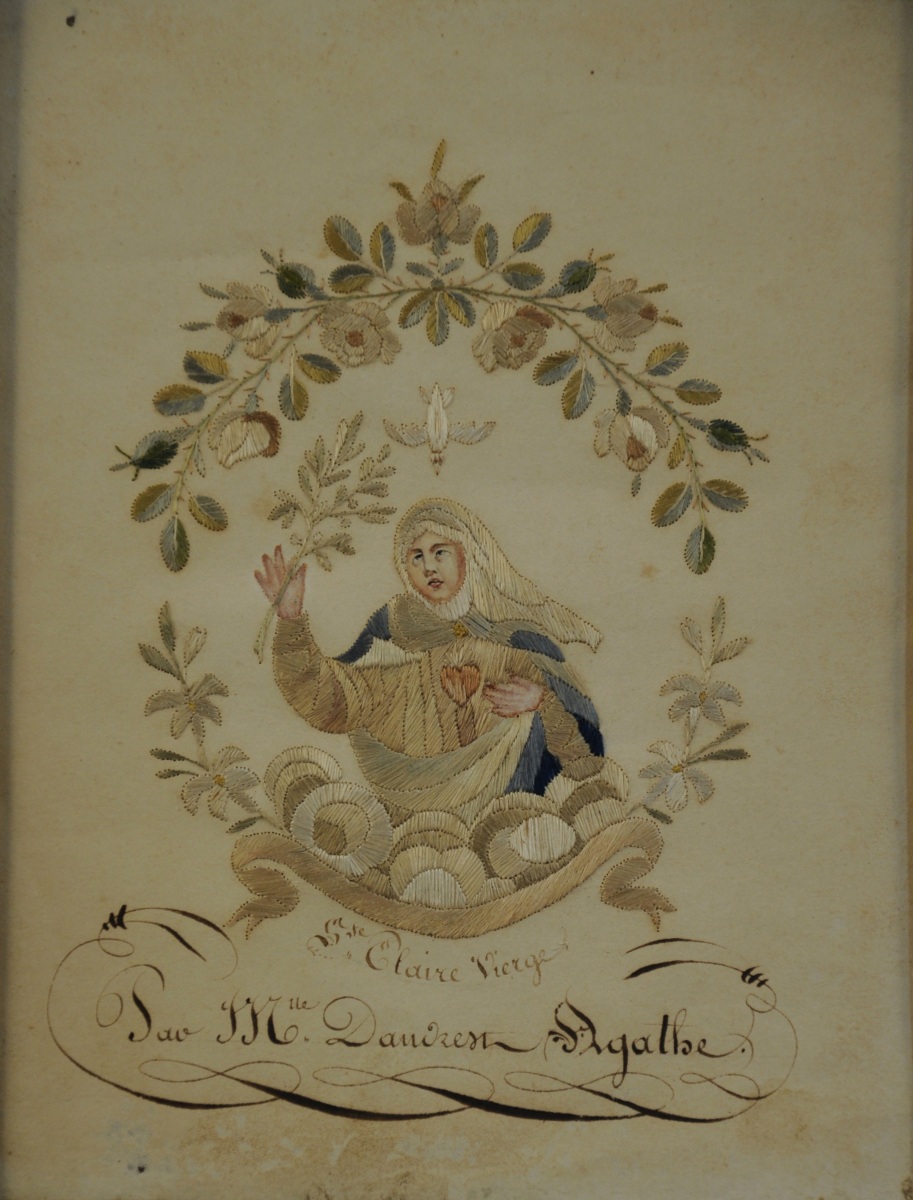 Ste Claire Vierge
Par Mlle. Dandrest Agathe.